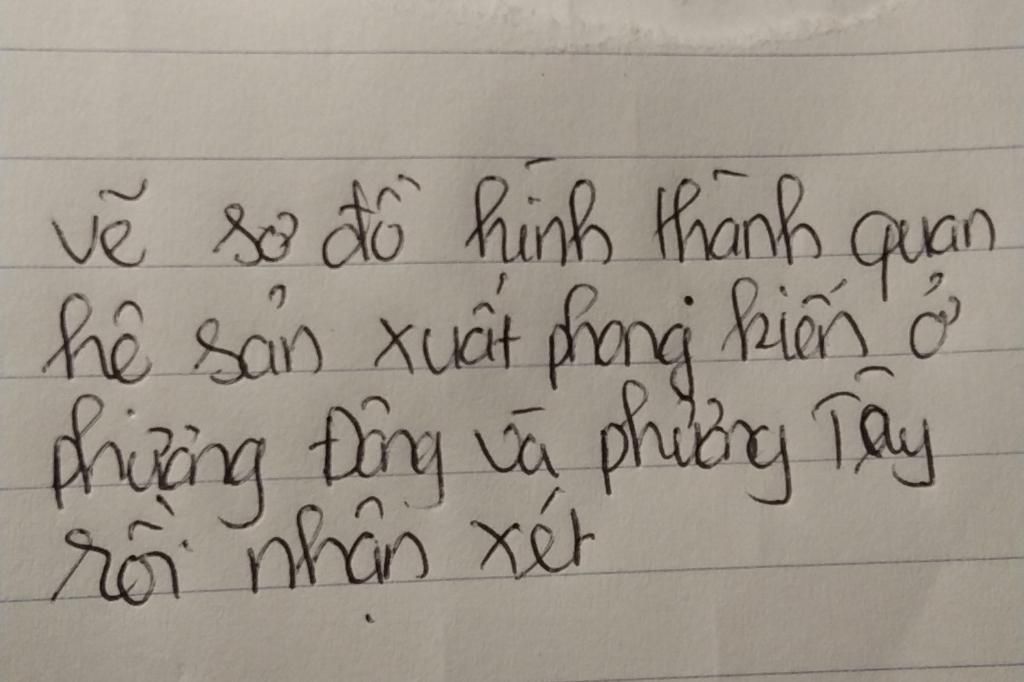 vẽ sơ đồ hình thành quan
hệ sản xuất phong kiến ở
phương Đông và phương Tây
rồi nhận xét